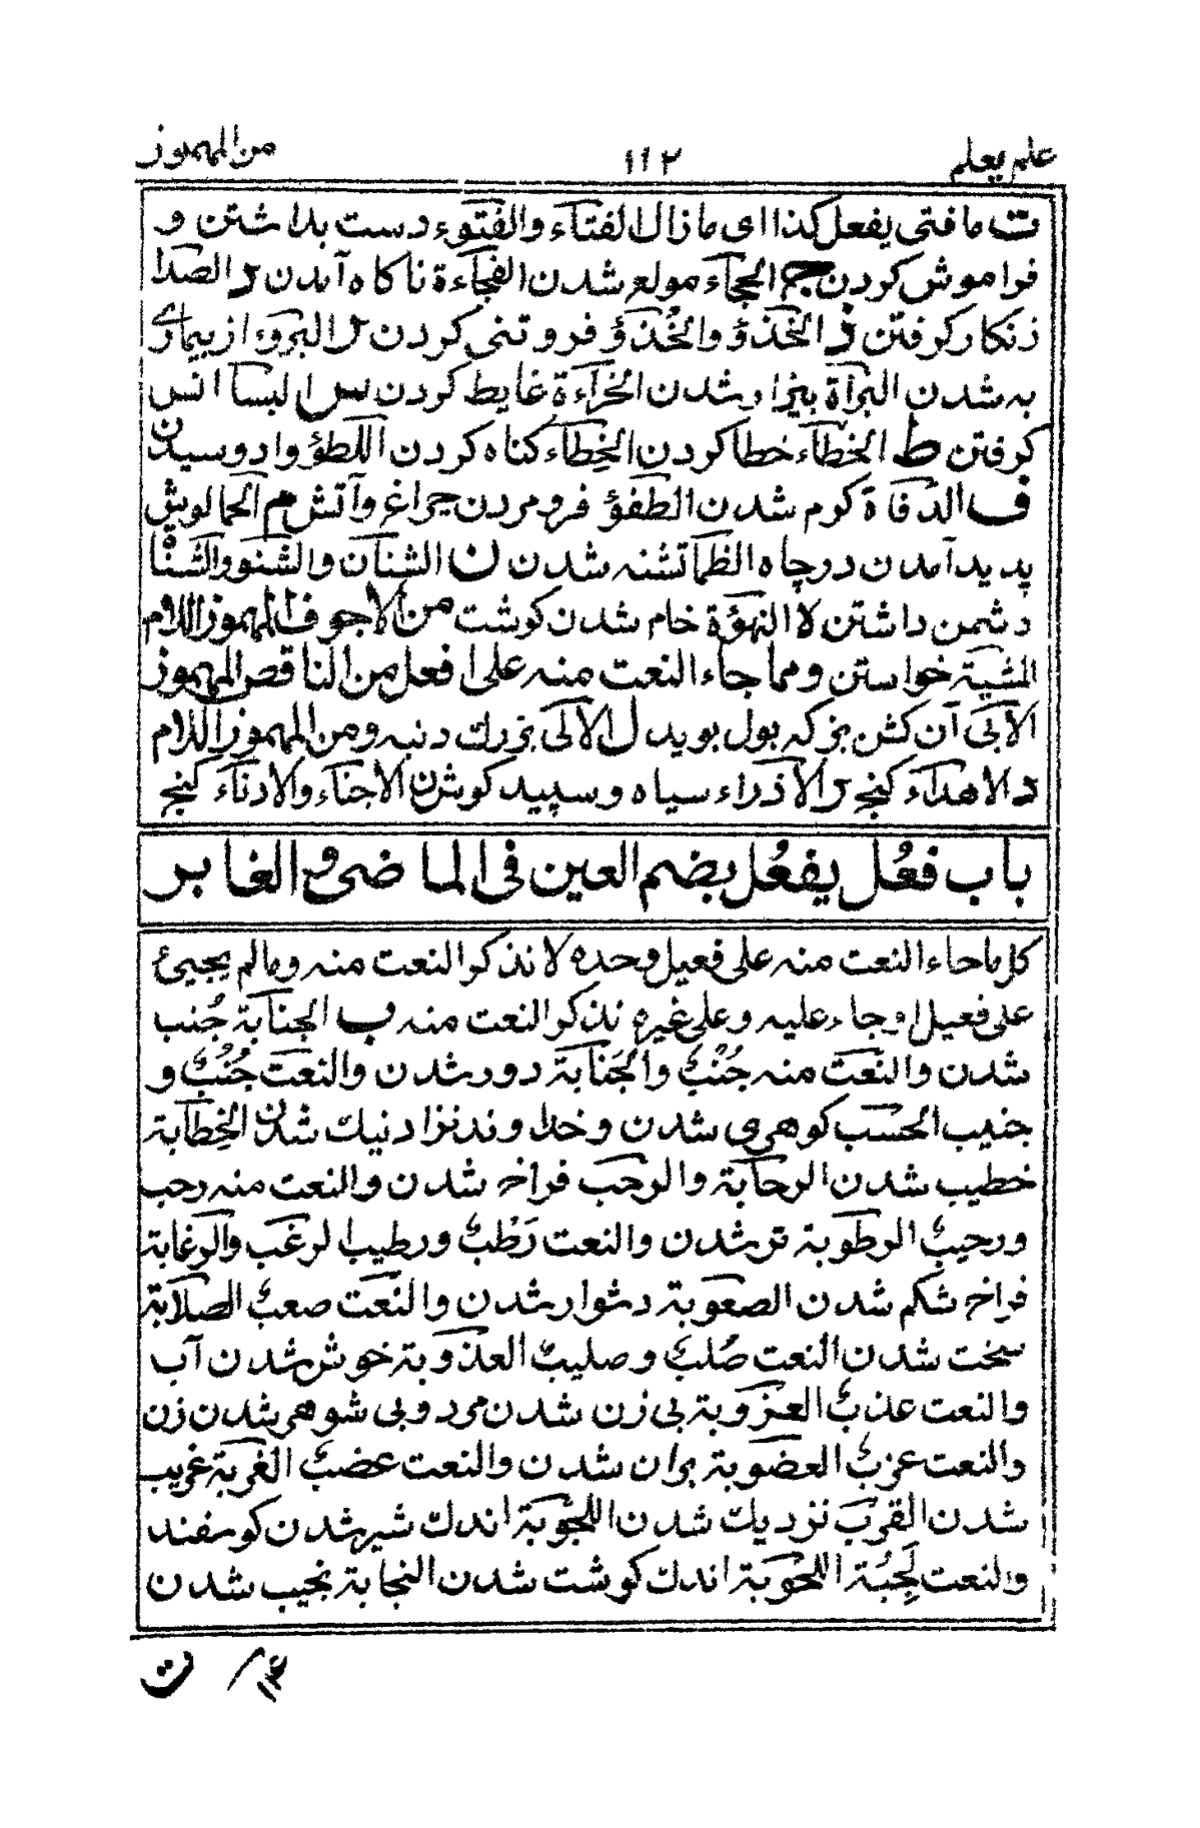 علم يعلم ١١٢ من المهموز
ت ما فتى يفعل كذا اى ما زال الفتاء والفتوء دست بداشتن و
فراموش كردن ج الحجاء مولع شدن الفجاءة ناكاه آمدن د الصدا
زنكار كرفتن ذ الخذؤ والخذؤ فروتنى كردن ر البروء از بيمارى
به شدن البرآة بيزار شدن الخرآءة غايط كردن س البسا انس
كرفتن ط الخطآء خطا كردن الخطاء كناه كردن اللطؤ وادوسيدن
ف الدفاة كرم شدن الطفؤ فرو مردن چراغ وآتش م الحما لوش
پديد آمدن در چاه الظما تشنه شدن ن الشنآن والشنو والشنا
دشمن داشتن لا النهؤة خام شدن كوشت من الاجوف المهموز اللام
المشية خواستن ومما جاء النعت منه على افعل من الناقص المهموز
الآبى آن كشن بز كه بول بويد ل الالى بزرك دنبه ومن المهموز اللام
د الاهداء كنج ر الاذراء سياه وسپيد كوش ن الاجناء والادناء كنج
باب فعُل يفعُل بضم العين فى الماضى والغابر
كل ما جاء النعت منه على فعيل وحده لا نذكر النعت منه ومالم يجيئ
على فعيل او جاء عليه وعلى غيره نذكر النعت منه ب الجنابة جُنب
شدن والنعت منه جُنُبٌ والجَنابة دور شدن والنعت جُنُبٌ و
جنيب الحسب كوهرى شدن وخداوند نزاد نيك شدن الخِطابة
خطيب شدن الرحابة والرحب فراخ شدن والنعت منه رحب
ورحيبٌ الرطوبة تر شدن والنعت رَطْبٌ ورطيب الرغب والرغابة
فراخ شكم شدن الصعوبة دشوار شدن والنعت صعبٌ الصلابة
سخت شدن النعت صُلبٌ وصليبٌ العذوبة خوش شدن آب
والنعت عذبٌ العزوبة بى زن شدن مرد وبى شوهر شدن زن
والنعت عزبٌ العضوبة بران شدن والنعت عضبٌ الغربة غريب
شدن القرب نزديك شدن اللجوبة اندك شير شدن كوسفند
والنعت لَجِبُة اللحوبة اندك كوشت شدن النجابة نجيب شدن
١١٤ / ت